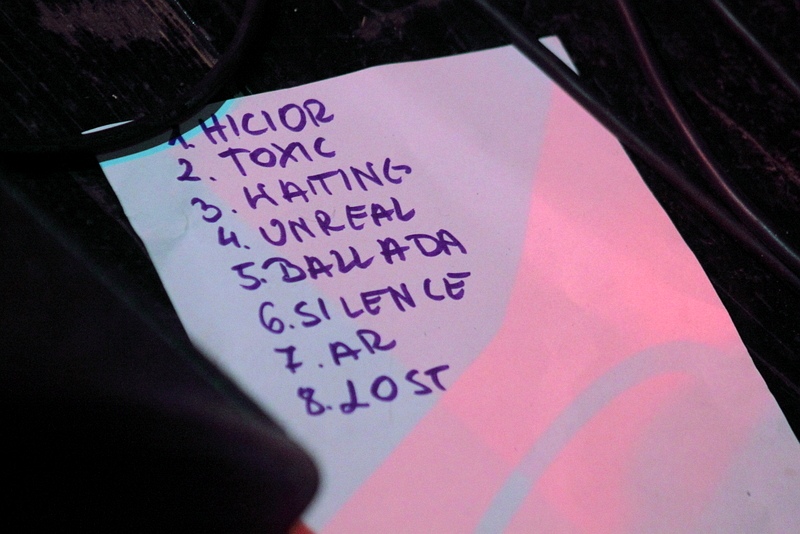 1. HICIOR
2. TOXIC
3. WAITING
4. UNREAL
5. BALLADA
6. SILENCE
7. AR
8. LOST